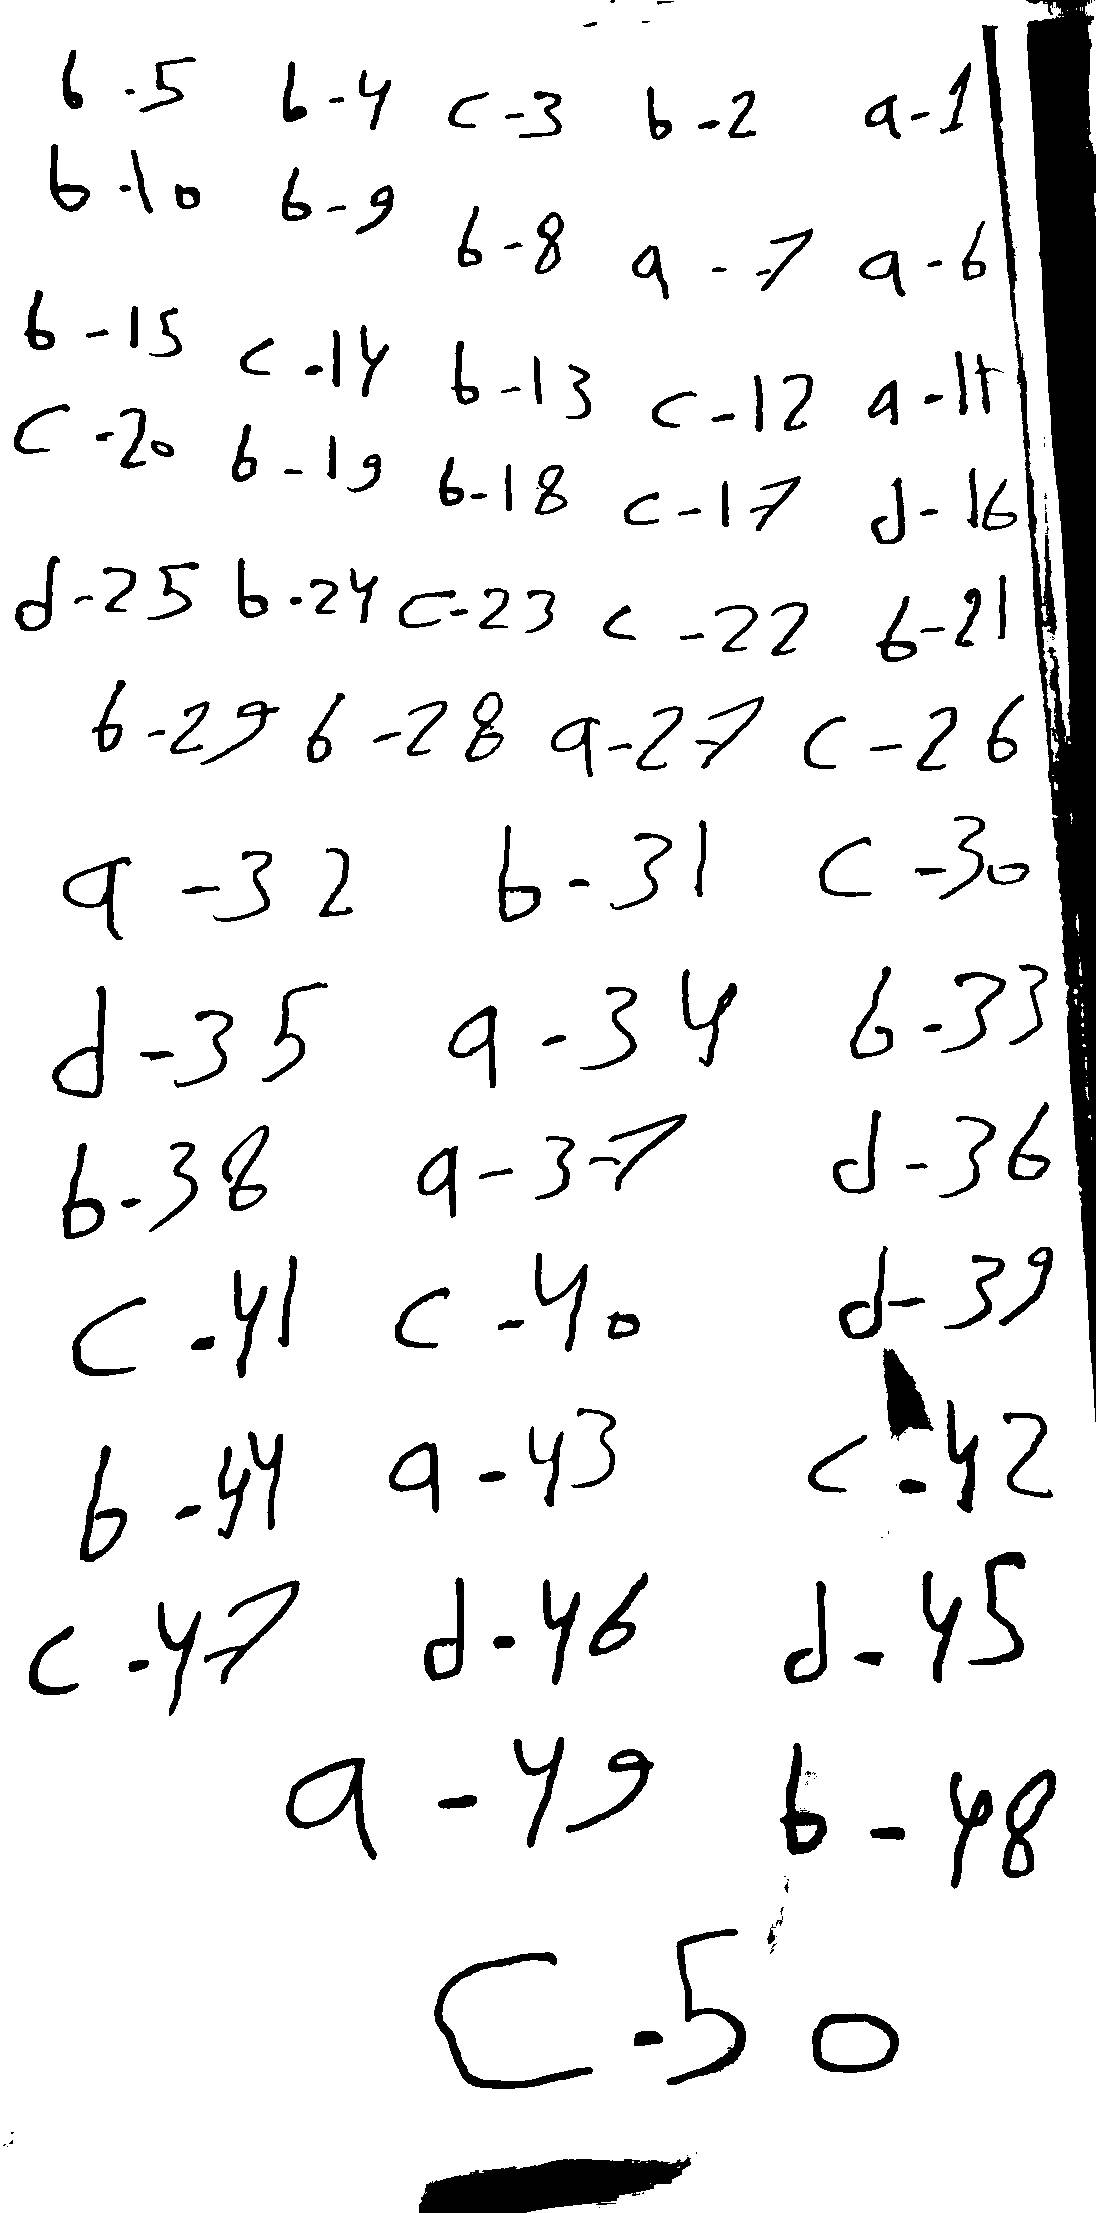 b-5 b-4 c-3 b-2 a-1
b-10 b-9 b-8 a-7 a-6
b-15 c-14 b-13 c-12 a-11
c-20 b-19 b-18 c-17 d-16
d-25 b-24 c-23 c-22 b-21
b-29 b-28 a-27 c-26
a-32 b-31 c-30
d-35 a-34 b-33
b-38 a-37 d-36
c-41 c-40 d-39
b-44 a-43 c-42
c-47 d-46 d-45
a-49 b-48
c-50